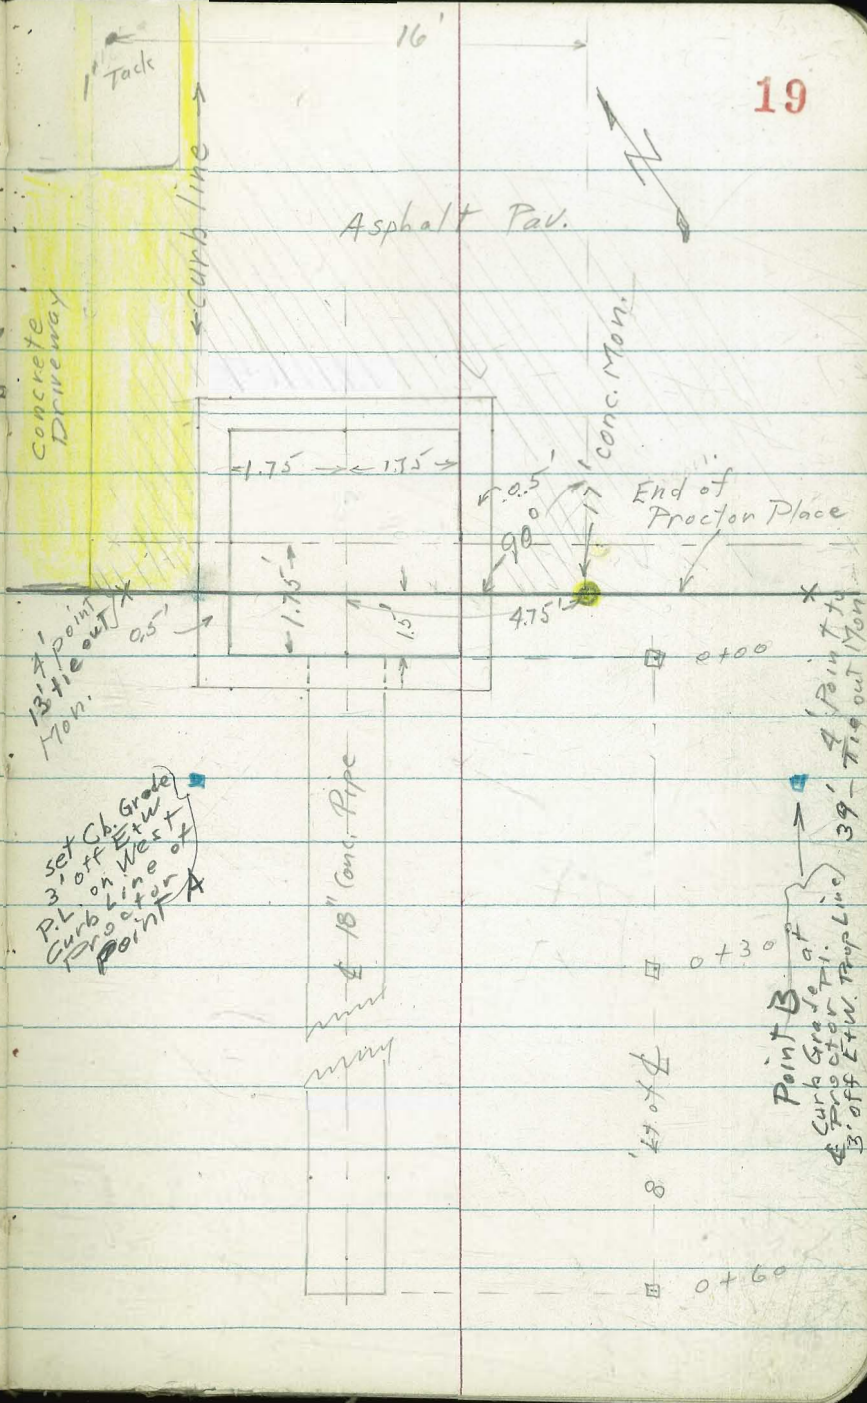 16'
19
1" Tack
← Curb line →
Asphalt Pav.
Concrete
Driveway
17' conc. Mon.
1.75 1.75'
0.5'
90°
End of
Proctor Place
1.75'
1.5'
4.75'
0.5'
13' 4' point
tie out
Mon.
0+00
4' Point to
39' – Tie out Mon.
Set Cb. Grade
3' off E+W
P.L. on West
Curb Line of
Proctor
Point A
℄ 18" Conc. Pipe
0+30
Point B
Curb Grade at
℄ Proctor Pl.
3' off E+W. Prop Line
8' Lt of ℄
0+60